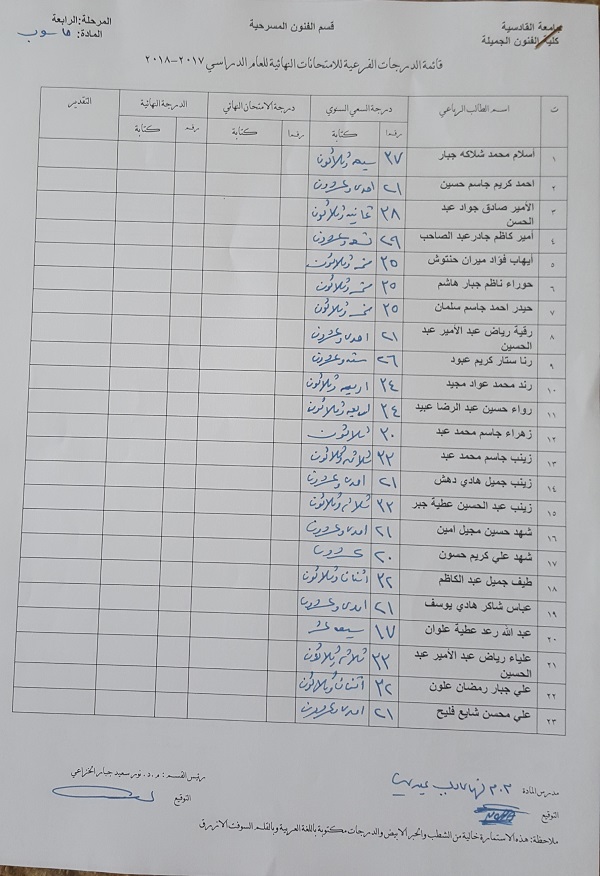 جامعة القادسية
كلية الفنون الجميلة
قسم الفنون المسرحية
المرحلة:الرابعة
المادة: حاسوب
قائمة الدرجات الفرعية للامتحانات النهائية للعام الدراسي ٢٠١٧-٢٠١٨
ت اسم الطالب الرباعي درجة السعي السنوي درجة الامتحان النهائي الدرجة النهائية التقدير
رقما كتابة رقما كتابة رقما كتابة
١ اسلام محمد شلاكه جبار ٣٧ سبعة وثلاثون
٢ احمد كريم جاسم حسين ٢١ احدى وعشرون
٣ الأمير صادق جواد عبد الحسن ٣٨ ثمانية وثلاثون
٤ أمير كاظم جادر عبد الصاحب ٢٩ تسعة وعشرون
٥ أيهاب فؤاد ميران حنتوش ٣٥ خمسة وثلاثون
٦ حوراء ناظم جبار هاشم ٣٥ خمسة وثلاثون
٧ حيدر احمد جاسم سلمان ٣٥ خمسة وثلاثون
٨ رقية رياض عبد الأمير عبد الحسين ٢١ احدى وعشرون
٩ رنا ستار كريم عبود ٢٦ ستة وعشرون
١٠ رند محمد عواد مجيد ٣٤ اربعة وثلاثون
١١ رواء حسين عبد الرضا عبيد ٣٤ اربعة وثلاثون
١٢ زهراء جاسم محمد عبد ٣٠ ثلاثون
١٣ زينب جاسم محمد عبد ٣٣ ثلاثة وثلاثون
١٤ زينب جميل هادي دهش ٢١ احدى وعشرون
١٥ زينب عبد الحسين عطية جبر ٣٣ ثلاثة وثلاثون
١٦ شهد حسين مجبل امين ٢١ احدى وعشرون
١٧ شهد علي كريم حسون ٢٠ عشرون
١٨ طيف جميل عبد الكاظم ٣٢ اثنان وثلاثون
١٩ عباس شاكر هادي يوسف ٢١ احدى وعشرون
٢٠ عبد الله رعد عطية علوان ١٧ سبعة عشر
٢١ علياء رياض عبد الأمير عبد الحسين ٣٣ ثلاثة وثلاثون
٢٢ علي جبار رمضان علون ٣٢ اثنان وثلاثون
٢٣ علي محسن شايع فليح ٢١ احدى وعشرون
مدرس المادة
التوقيع
رئيس القسم: م.د. نور سعيد جبار الخزاعي
التوقيع
ملاحظة: هذه الاستمارة خالية من الشطب والحبر الابيض والدرجات مكتوبة باللغة العربية وبالقلم السوفت الازرق